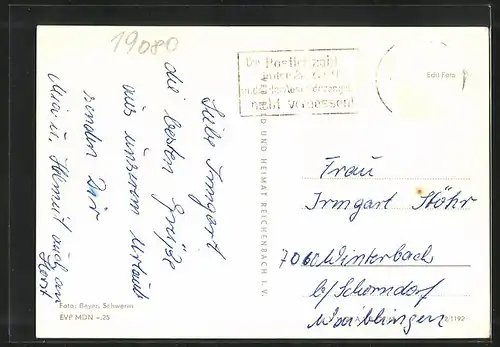 19080
Die Postleitzahl
nicht vergessen!
Edit Foto
Liebe Irmgart
die besten Grüße
aus unserem Urlaub
senden Dir
Mia u. Helmut auch an
Horst
BILD UND HEIMAT REICHENBACH I. V.
Frau
Irmgart Stöhr
7060 Winterbach
b/Schorndorf
Waiblingen
Foto: Beyer, Schwerin
EVP MDN -.25
1192